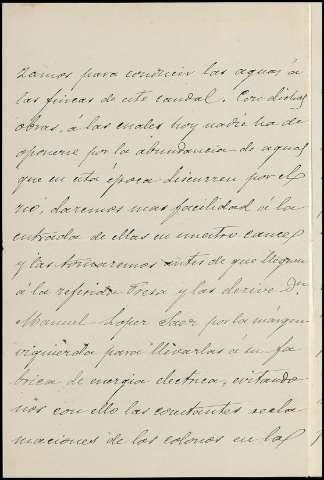 zamos para conducir las aguas á
las fincas de este caudal. Con dichas
obras, á las cuales hoy nadie ha de
oponerse por la abundancia de aguas
que en está época discurren por el
rio, daremos mas facilidad á la
entrada de ellas en nuestro cauce
y las tomaremos antes de que lleguen
á la referida Presa y las derive Dn
Manuel Lopez Saez por la margen
izquierda para llevarlas á su fa
brica de energia electrica, evitando
nos con ello las constantes recla
maciones de los colonos en las